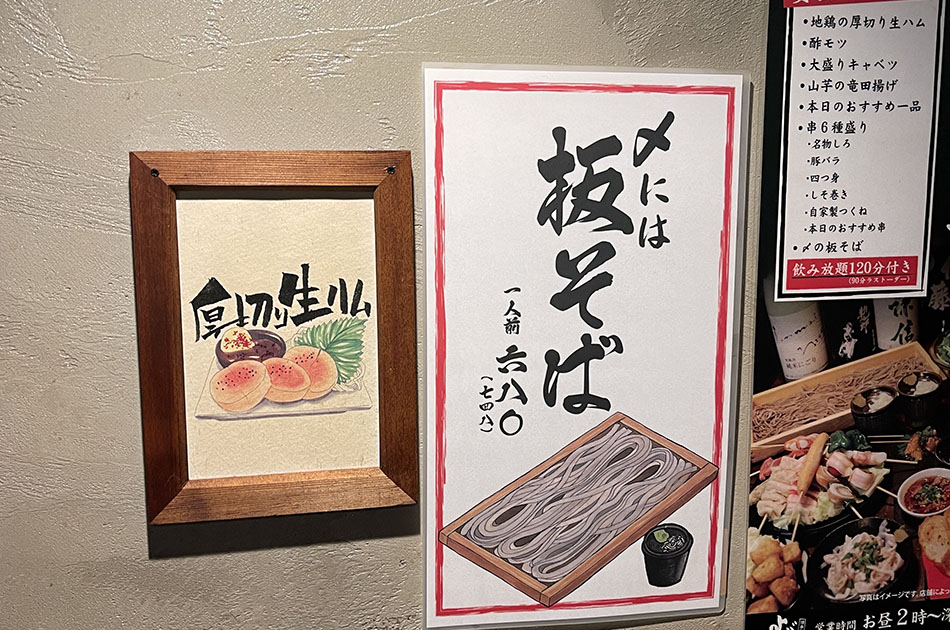 厚切り生ハム
〆には
板そば
一人前 六八〇
(七四八)
•地鶏の厚切り生ハム
•酢モツ
•大盛りキャベツ
•山芋の竜田揚げ
•本日のおすすめ一品
•串6種盛り
・名物しろ
・豚バラ
・四つ身
・しそ巻き
・自家製つくね
・本日のおすすめ串
•〆の板そば
飲み放題120分付き
(90分ラストオーダー)
写真はイメージです。店舗によっ
営業時間 お昼2時〜深